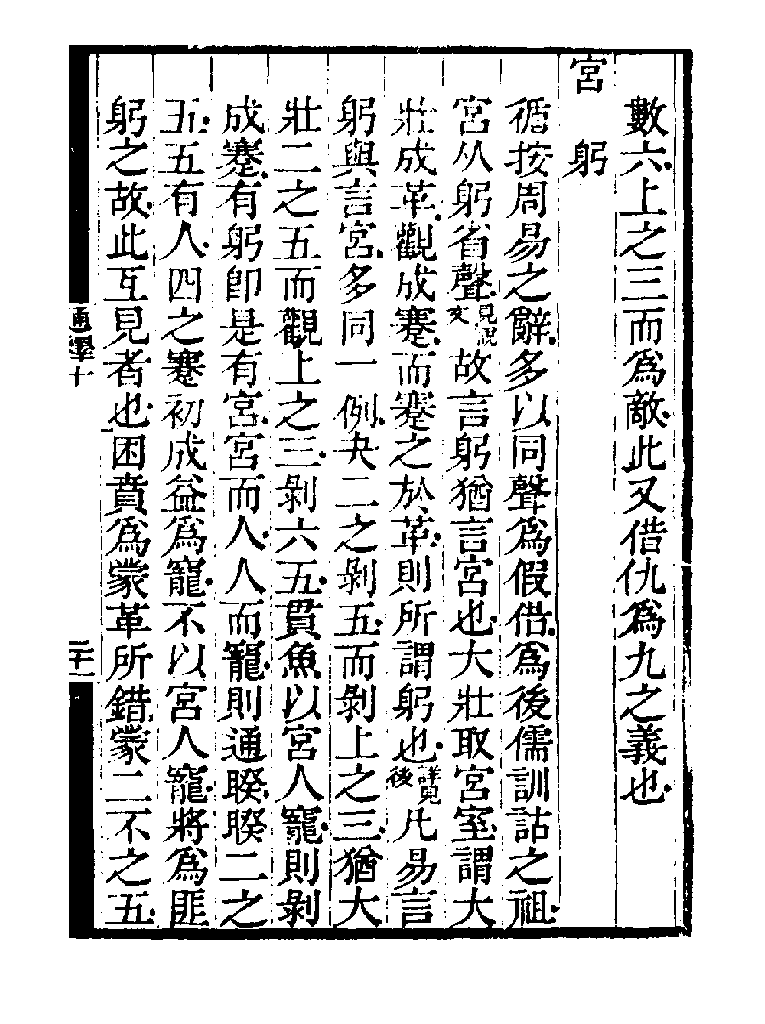 數六上之三而爲敵此又借仇爲九之義也
宮　躬
循按周易之辭多以同聲爲假借爲後儒訓詁之祖
宮从躬省聲見說文故言躬猶言宮也大壯取宮室謂大
壯成革觀成蹇而蹇之於革則所謂躬也詳見後凡易言
躬與言宮多同一例夬二之剝五而剝上之三猶大
壯二之五而觀上之三剝六五貫魚以宮人寵則剝
成蹇有躬卽是有宮宮而人人而寵則通睽睽二之
五五有人四之蹇初成益爲寵不以宮人寵將爲匪
躬之故此互見者也困賁爲蒙革所錯蒙二不之五
通釋十
二十一